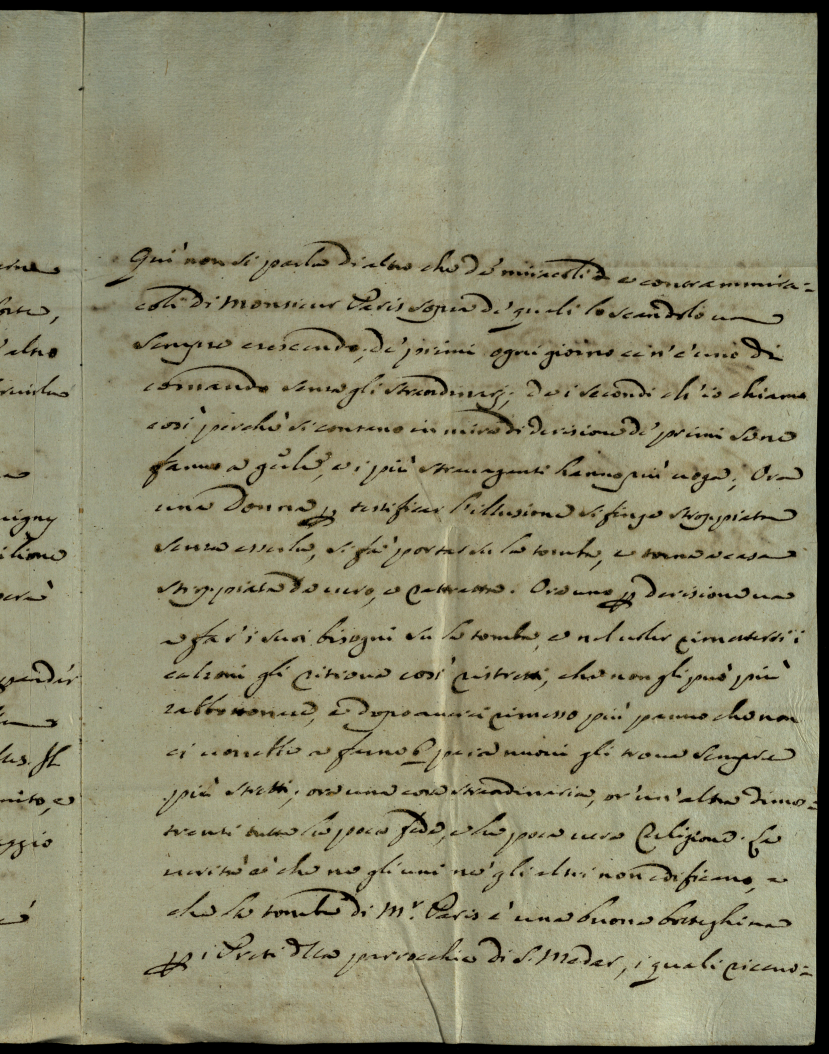 Qui non si parla di altro che de' miracoli e contrammira=
coli di Monsieur Paris sopra de' quali lo scandolo va
sempre crescendo, de' primi ogni giorno ce n'è uno di
comando senza gli straordinarj; de i secondi ch'io chiamo
così perchè si contano in mira di derisione de' primi se ne
fanno a , e i più stravaganti hanno più voga; Ora
una Donna p testificar l'illusione si finge stroppiata
senza esserla, si fà portar su la tomba, e torna a casa
stroppiata da vero, e rattratta. Ora uno p derisione va
a far i suoi bisogni su la tomba, e nel voler rimettersi i
calzoni gli ritrova così ristretti, che non gli può più
rabbottonare, e dopo averci rimesso più panno che non
ci vorrebbe a farne 6 para nuovi gli trova sempre
più stretti; ora una cosa straordinaria, or' un' altra dimo=
stranti tutte la poca fede, e la poca vera Religione. La
verità è che ne gli uni ne' gli altri non edificano, e
che la tomba di Mr. Paris è una buona botteghina
p i Preti della parrocchia di S. Medar, i quali ricavo=
altro